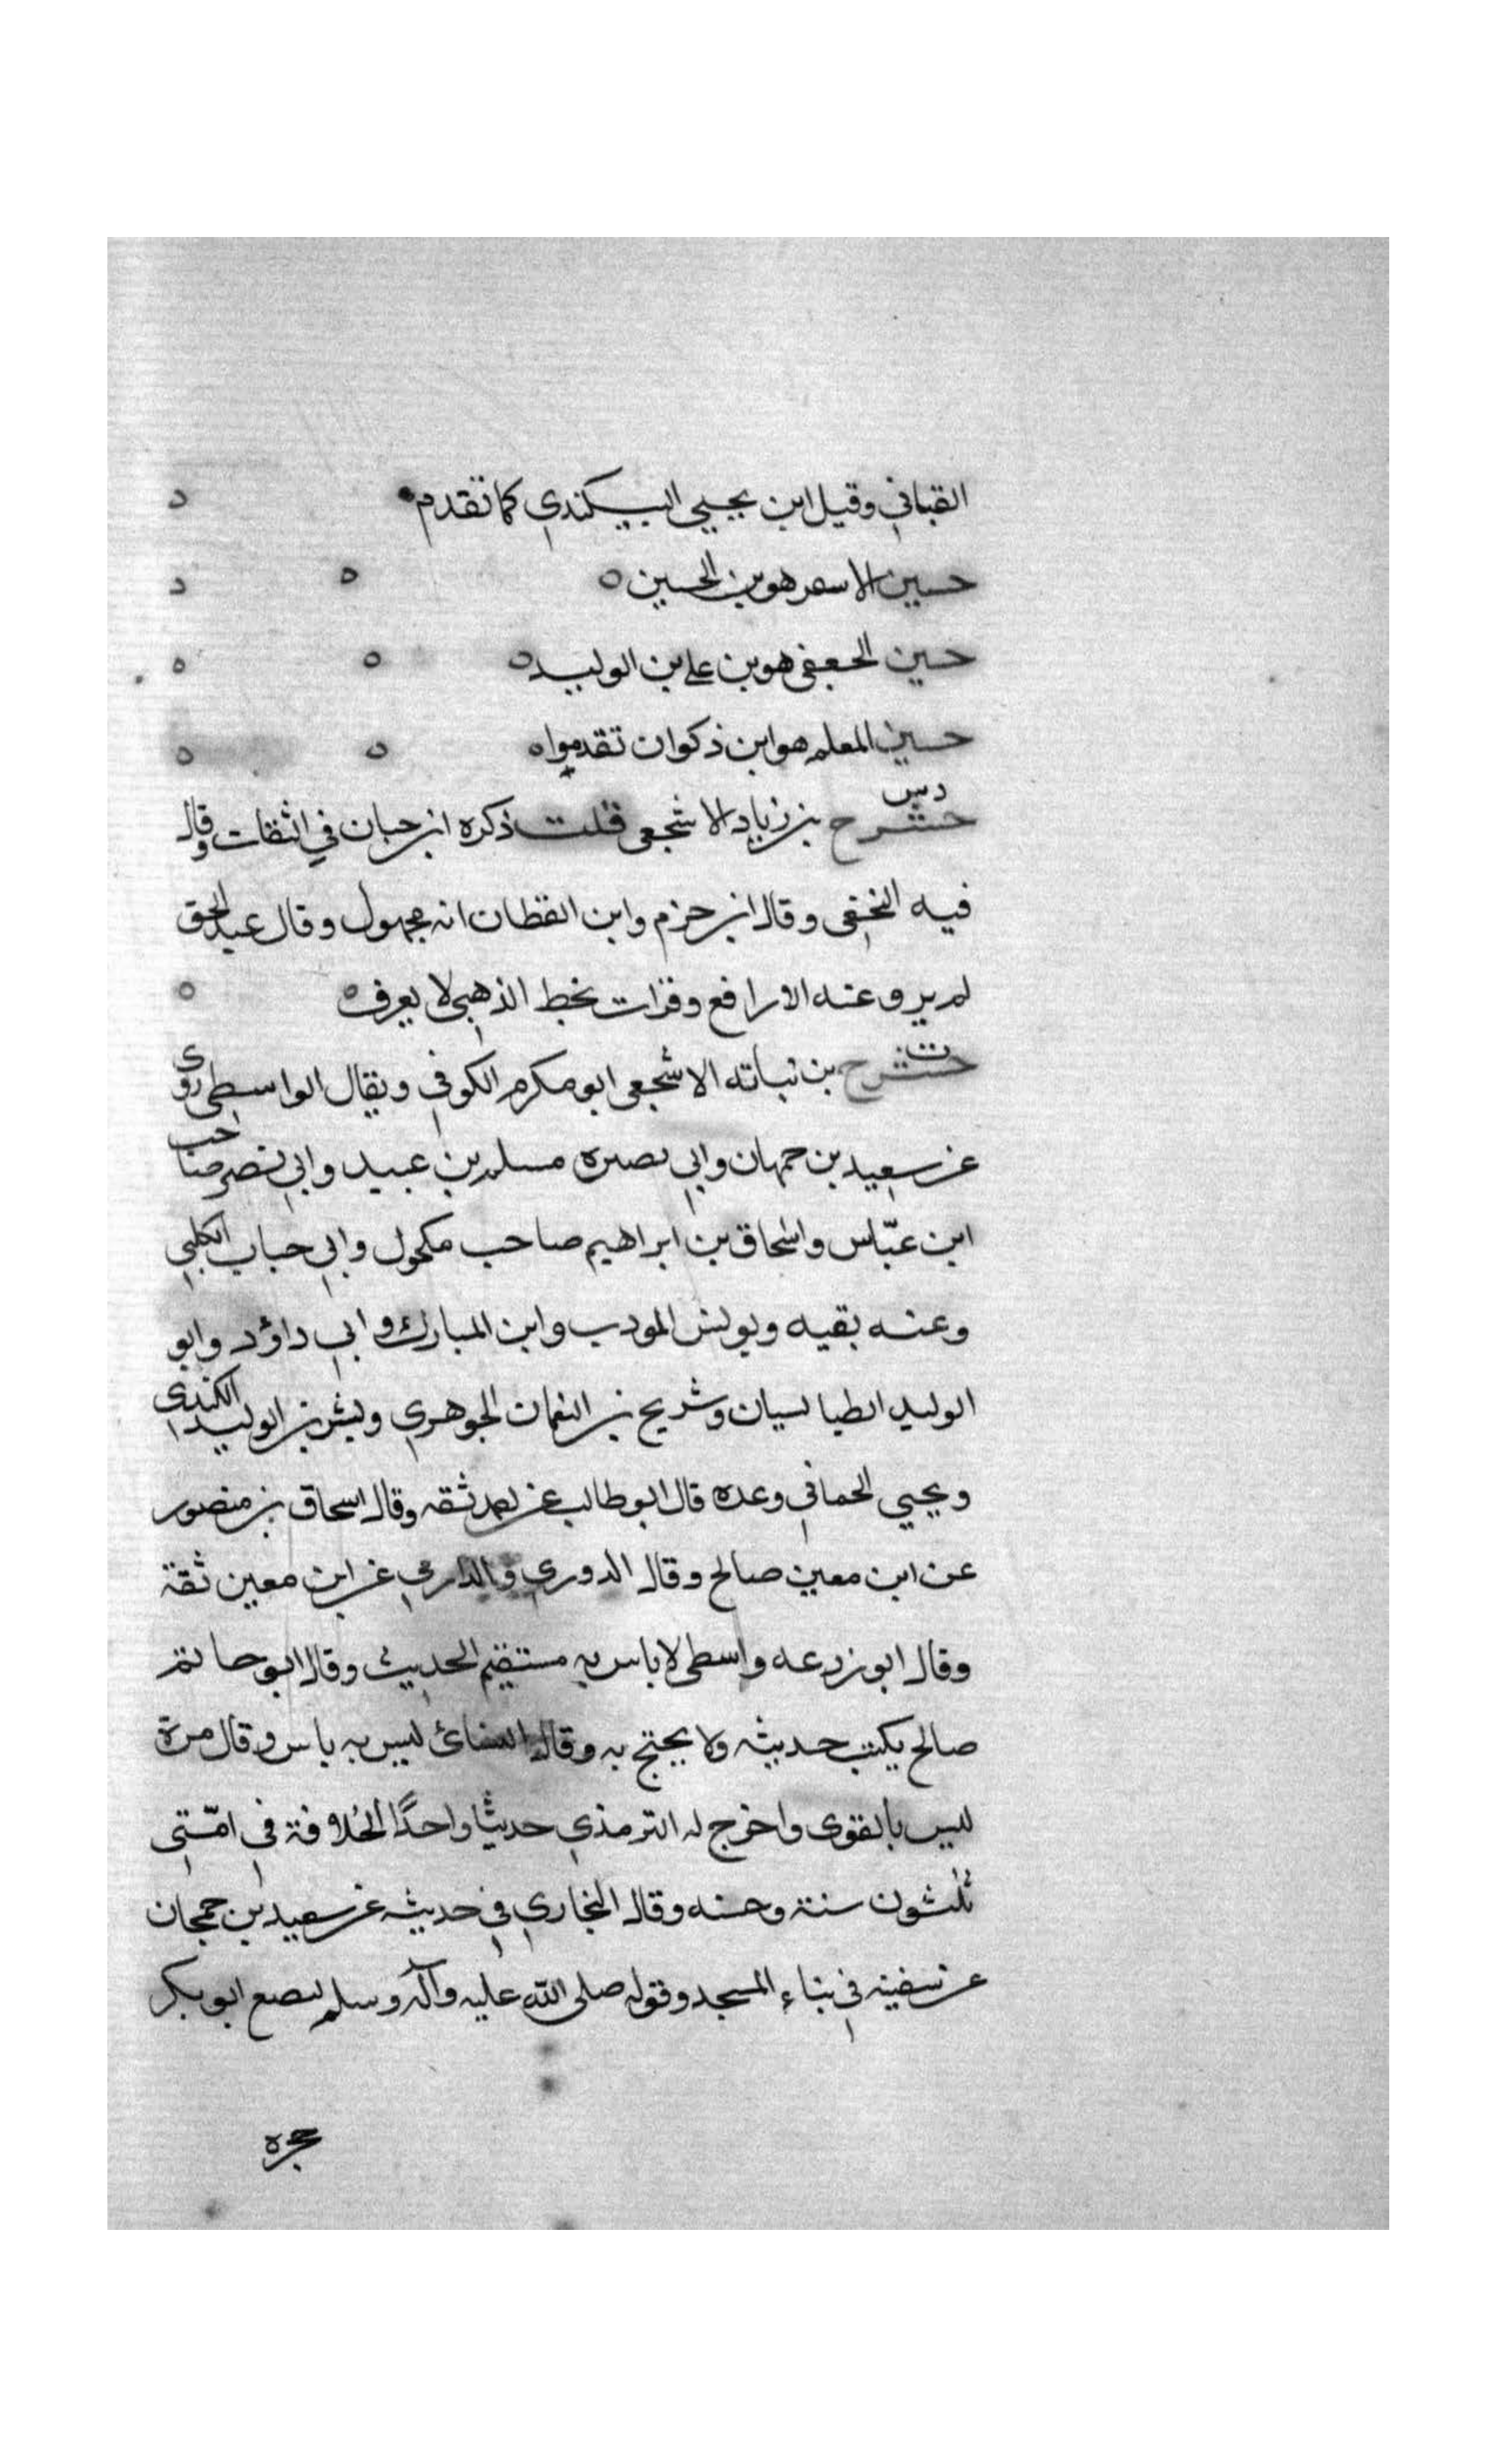 القباني وقيل ابن يحيي البيكندي كما تقدم
حسين الاسعر هو بن الحسين
حسين الجعفي هو بن علي بن الوليد
حسين المعلم هو ابن ذكوان تقدموا
دس
حشرج بن زياد الاشجعي قلت ذكره ابن حبان في الثقات وقال
فيه النخعي وقال ابن حزم وابن القطان انه مجهول وقال عبد الحق
لم يرو عنه الا رافع وقرات بخط الذهبي لا يعرف
ت
حشرج بن نباته الاشجعي ابو مكرم الكوفي ويقال الواسطي روى
عن سعيد بن جمهان وابي نصيره مسلم بن عبيد وابي نصر صاحب
ابن عبّاس واسحاق بن ابراهيم صاحب مكحول وابي حباب الكلبي
وعنه بقيه ويونس المودب وابن المبارك وابي داؤد وابو
الوليد الطيالسيان وشريح بن النعمان الجوهري وبشر بن الوليد الكندي
ويحيي الحماني وعده قال ابو طالب عن احمد ثقه وقال اسحاق بن منصور
عن ابن معين صالح وقال الدوري والدارمي عن ابن معين ثقة
وقال ابو زرعه واسطي لا باس به مستقيم الحديث وقال ابو حاتم
صالح يكتب حديثه ولا يحتج به وقال النسائ ليس به باس وقال مرة
ليس بالقوي واخرج له الترمذي حديثًا واحدًا الخلافة في امّتي
ثلثون سنة وحسنه وقال البخاري في حديثه عن سعيد بن جمحان
عن سفينه في بناء المسجد وقوله صلى الله عليه وآله وسلم ليضع ابو بكر
حجره